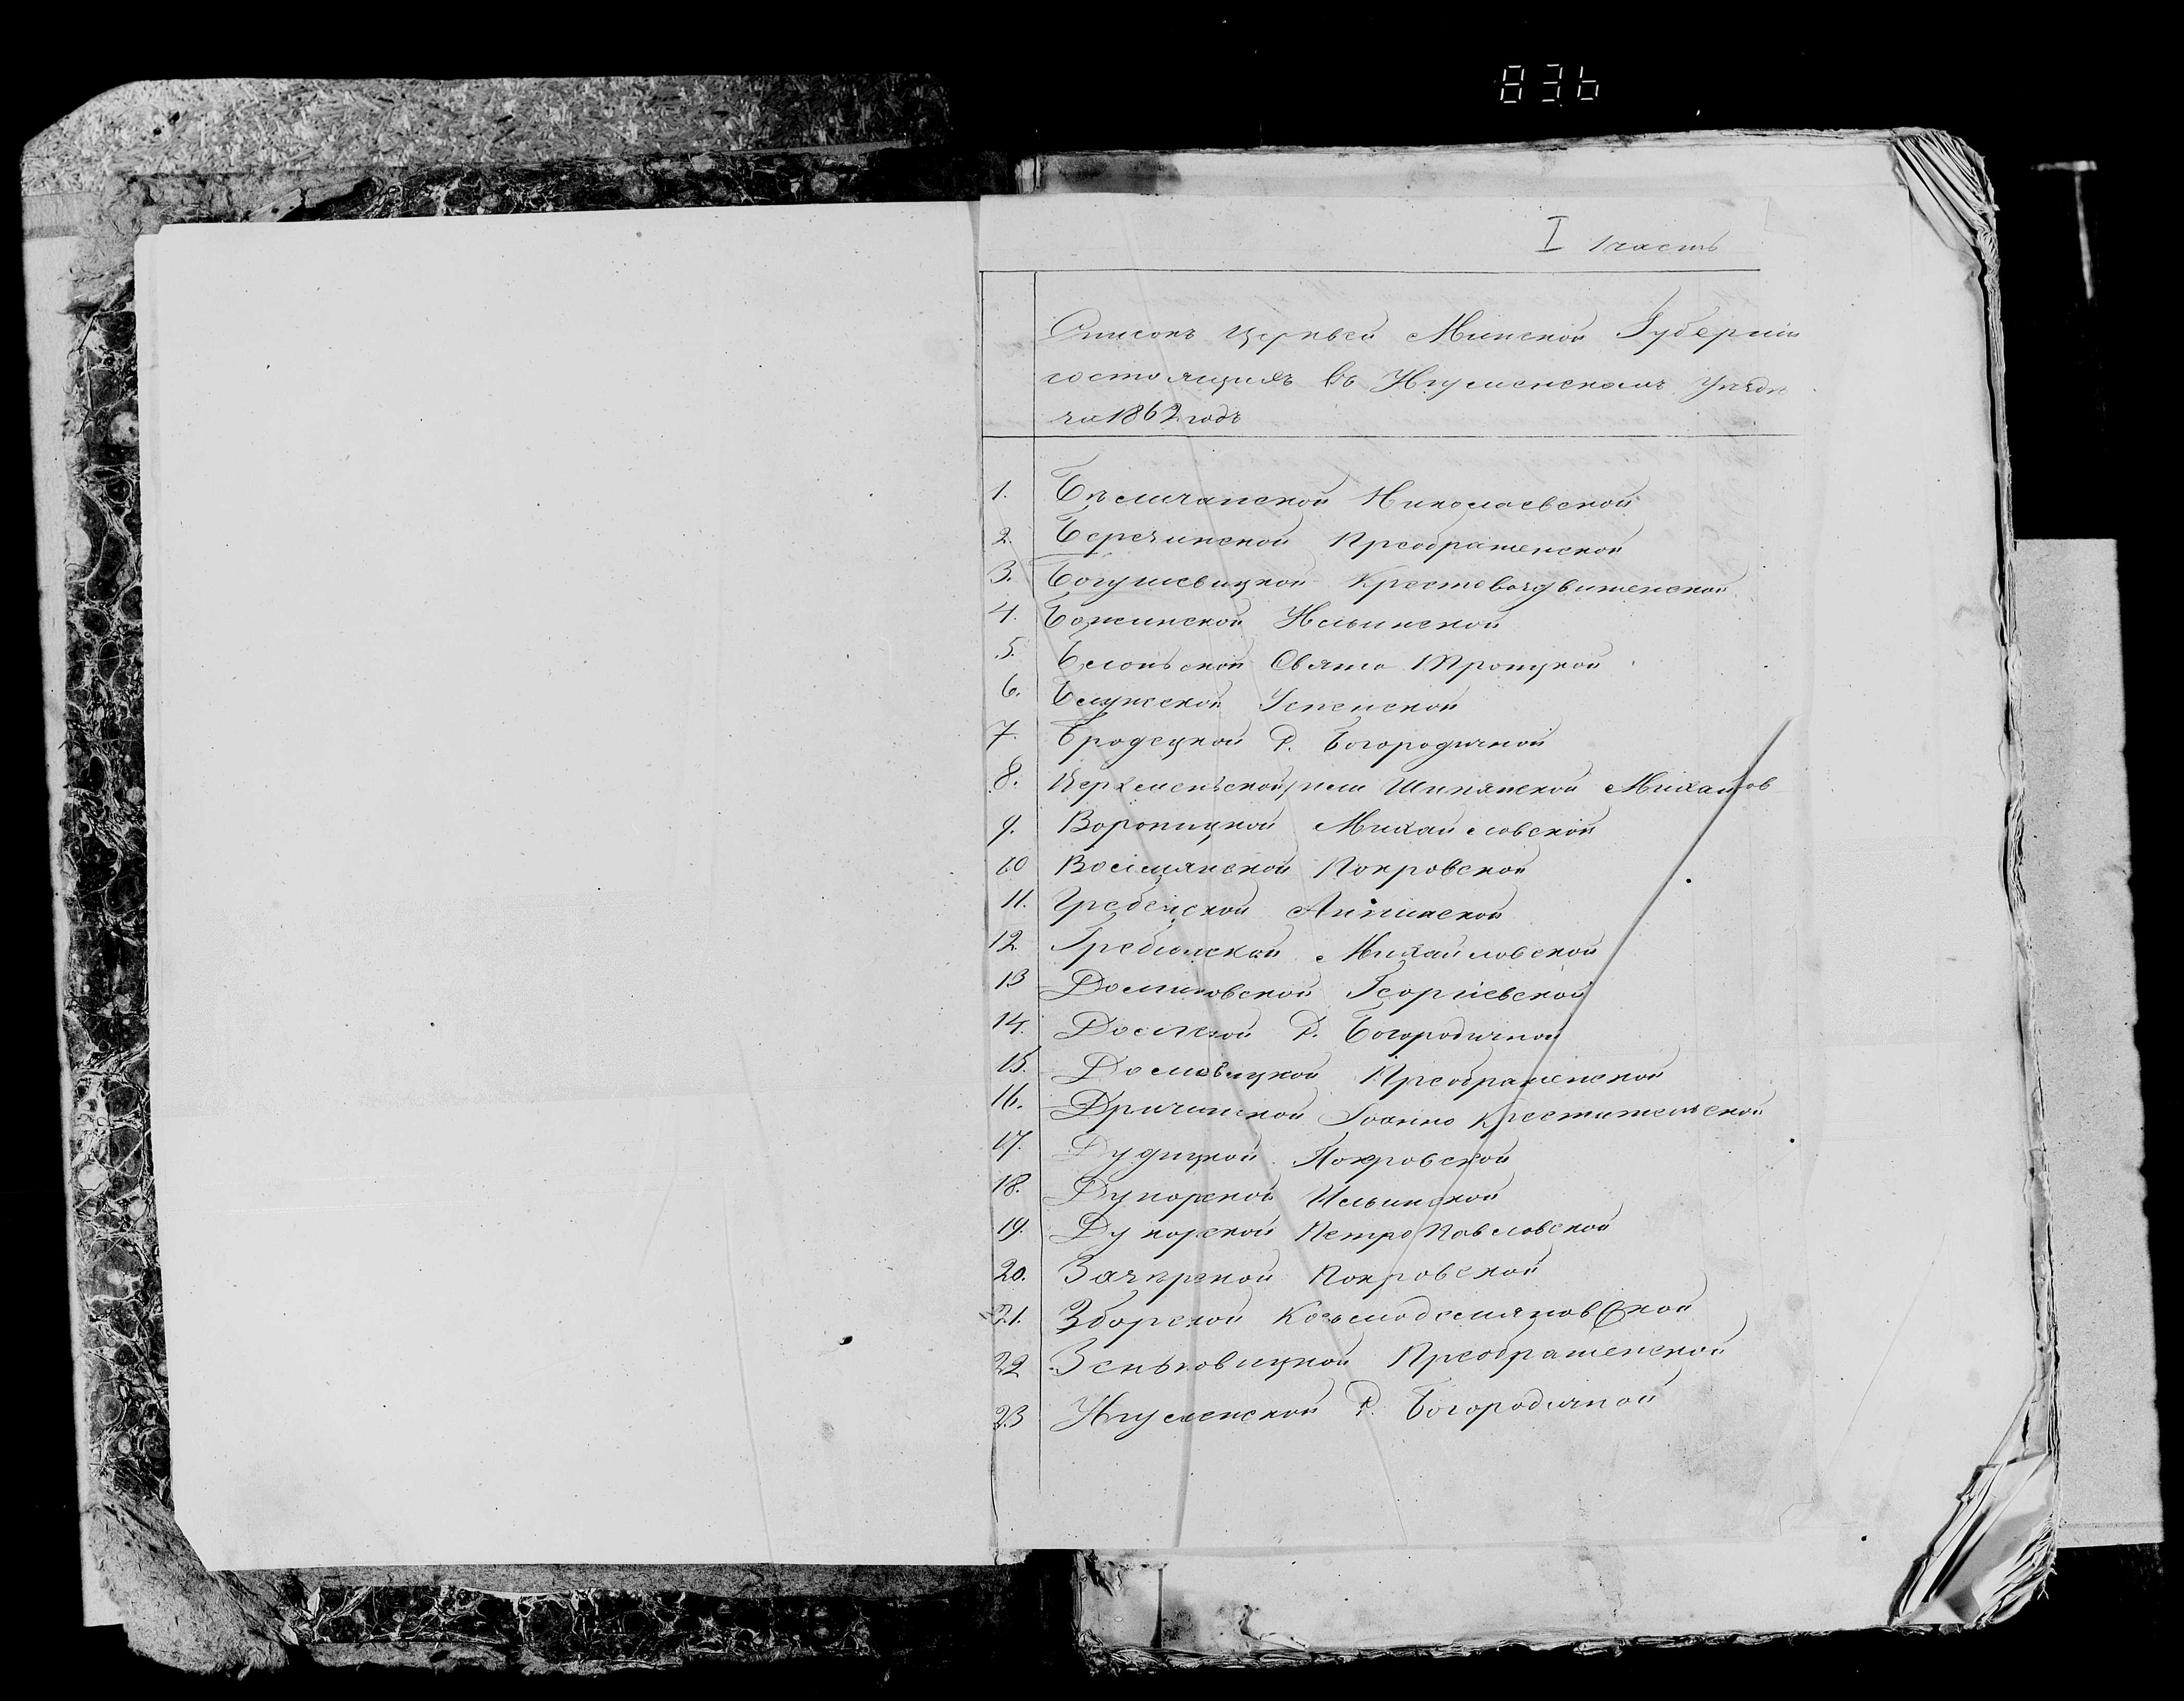 836
I 1 часть
Списокъ церквей Минской Губерніи
состоящихъ въ Игуменскомъ Уѣздѣ
за 1862 годъ
1. Бѣличанской Николаевской
2. Березинской Преображенской
3. Богушевицкой Крестовоздвиженской
4. Божинской Ильинской
5. Блоньской Свято Троицкой
6. Блужской Успенской
7. Бродецкой Р. Богородичной
8. Верхменьской или Шипянской Михайлов
9. Воропицкой Михайловской
10 Волмянской Покровской
11. Гребенской Аннинской
12. Гребіонской Михайловской
13 Домановской Георгіевской
14. Р. Богородичной
15. Преображенской
16. Дричинской Іоанно Крестительской
17. Дудицкой Покровской
18. Дукорской Ильинской
19. Дукорской Петро Павловской
20. Зазерской Покровской
21. Зборской Козьмодемяновской
22 Зеньковицкой Преображенской
23 Игуменской Р. Богородичной